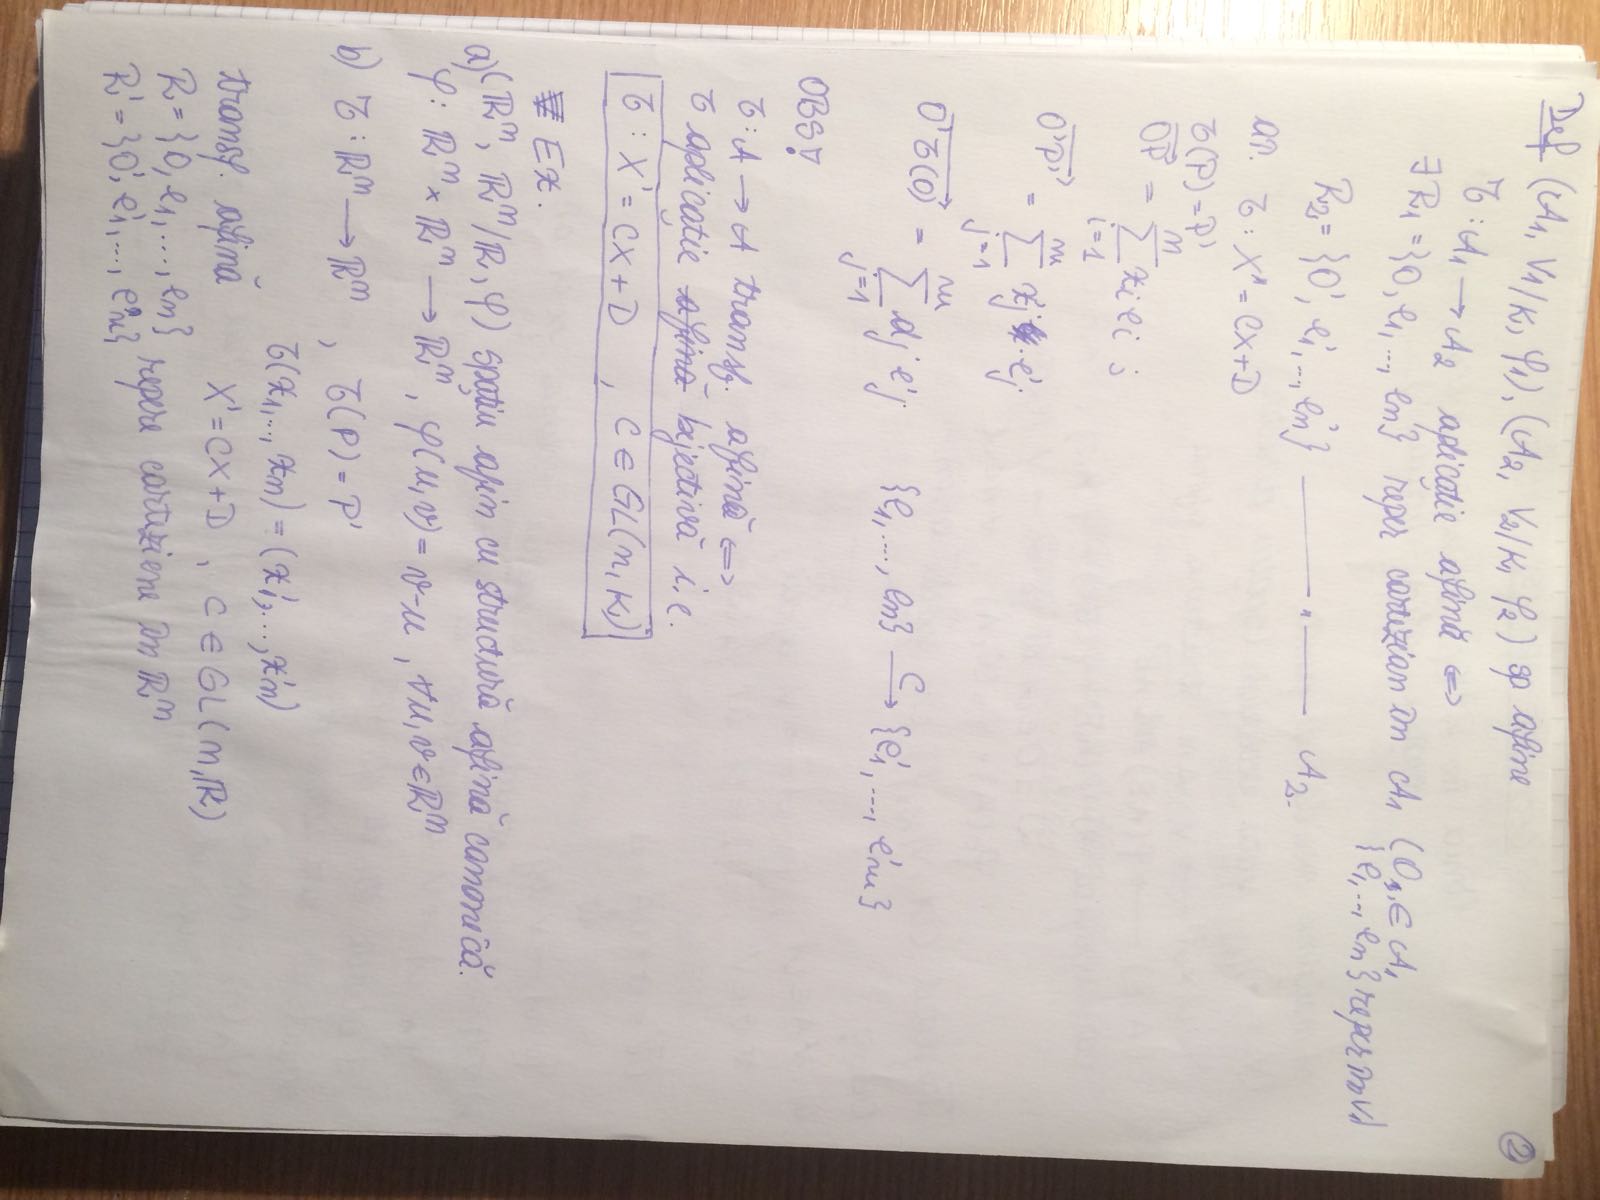 ②
Def (A₁, V₁/K, φ₁), (A₂, V₂/K, φ₂) sp afine
τ : A₁ → A₂ aplicație afină ⇔
∃ R₁ = {O, e₁, ..., en} reper cartezian în A₁ (O ∈ A₁
{e₁, ..., en} reper în V₁
R₂ = {O', e₁', ..., em'} ——— " ——— A₂.
aî. τ : X' = CX + D
τ(P) = P'
OP = Σ_{i=1}^{n} xi ei ;
O'P' = Σ_{j=1}^{m} xj' · ej'
O'τ(O) = Σ_{j=1}^{m} dj e'j {e₁, ..., en} —C→ {e'₁, ..., e'm}
OBS.
τ : A → A transf. afină ⇔
τ aplicație afină bijectivă i.e.
τ : X' = CX + D , C ∈ GL(n, K)
Ex.
a) (ℝⁿ, ℝⁿ/ℝ, φ) spațiu afin cu structură afină canonică.
φ : ℝⁿ × ℝⁿ → ℝⁿ, φ(u, v) = v - u, ∀ u, v ∈ ℝⁿ
b) τ : ℝⁿ → ℝⁿ , τ(P) = P'
τ(x₁, ..., xn) = (x₁', ..., xn')
transf. afină X' = CX + D , C ∈ GL(n, ℝ)
R = {O, e₁, ..., en} repere carteziene în ℝⁿ
R' = {O', e'₁, ..., e'n}